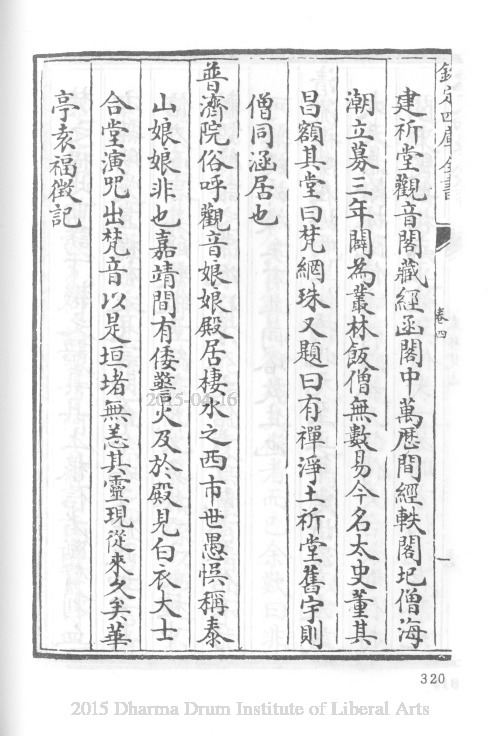 欽定四庫全書
卷四
建祈堂觀音閣藏經函閣中萬歷間經軼閣圮僧海
潮立募三年闢為叢林飯僧無數易今名太史董其
昌額其堂曰梵網珠又題曰有禪淨土祈堂舊宇則
僧同涵居也
普濟院俗呼觀音娘娘殿居棲水之西市世愚悞稱泰
山娘娘非也嘉靖間有倭警火及於殿見白衣大士
合堂演咒出梵音以是垣堵無恙其靈現從來久矣華
亭袁福徵記
2015-04-16
320
2015 Dharma Drum Institute of Liberal Arts